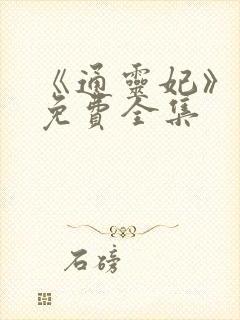 《通靈妃》
免費全集
石磅